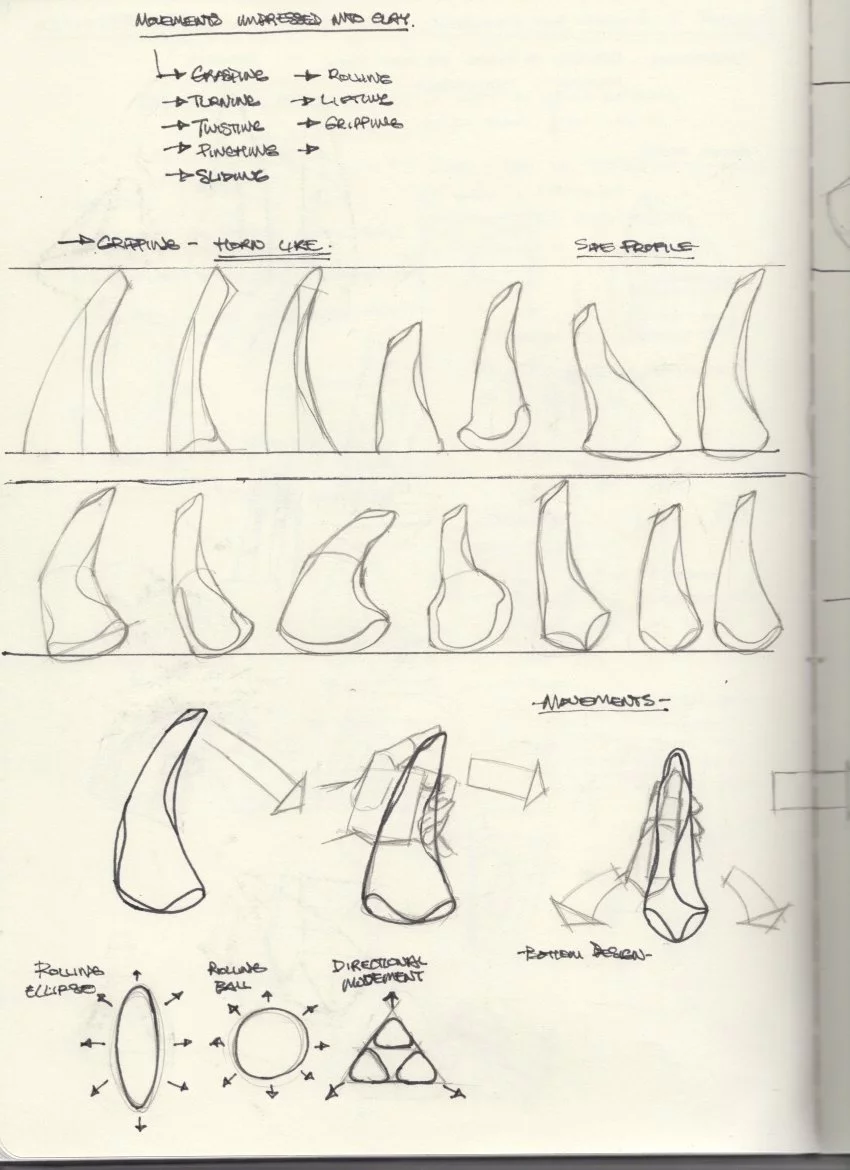 MOVEMENTS IMPRESSED INTO CLAY.
→ GRASPING → ROLLING
→ TURNING → LIFTING
→ TWISTING → GRIPPING
→ PINCHING →
→ SLIDING
→ GRIPPING - HORN LIKE.
SIDE PROFILE
- MOVEMENTS -
- BOTTOM DESIGN -
ROLLING
ELLIPSE
ROLLING
BALL
DIRECTIONAL
MOVEMENT